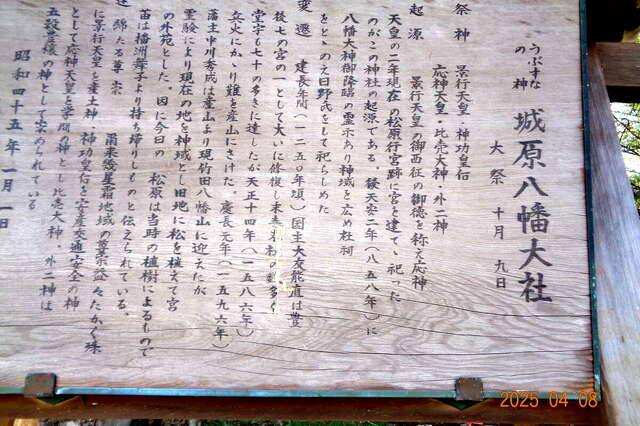 うぶすな
の神
城原八幡大社
大祭 十月 九日
祭神 景行天皇・神功皇后
応神天皇・比売大神・外二神
起源 景行天皇の御西征の御徳を称え応神
天皇の二年現在の松原行宮跡に宮を建てゝ祀った
のがこの神社の起源である 後天安二年(八五八年)に
八幡大神御降臨の霊示あり神域を広め社祠
をとゝのえ日野氏をして祀らしめた
変遷 建長年間(一二五〇年頃)国主大友能直は豊
後七の宮の一として大いに修復し
堂宇も七十の多きに達したが天正十四年(一五八六年)
兵火にかゝり難を産山にさけた。慶長元年(一五九六年)
藩主中川秀成は産山より現竹田八幡山に迎えたが
霊験により現在の地を神域とし旧地に松を植えて宮
の外苑とした。因に今日の 松原は当時の植樹によるもので
苗は播洲舞子より持ち帰りしものと伝えられている。
綿たる尊崇 爾来幾星霜地域の尊崇益々たかく殊
に景行天皇を産土神 神功皇后を安産交通安全の神
として応神天皇を学問の神とし比売大神・外二神は
五穀豊穣の神として崇められている
昭和四十五年一月一日
2025 04 08